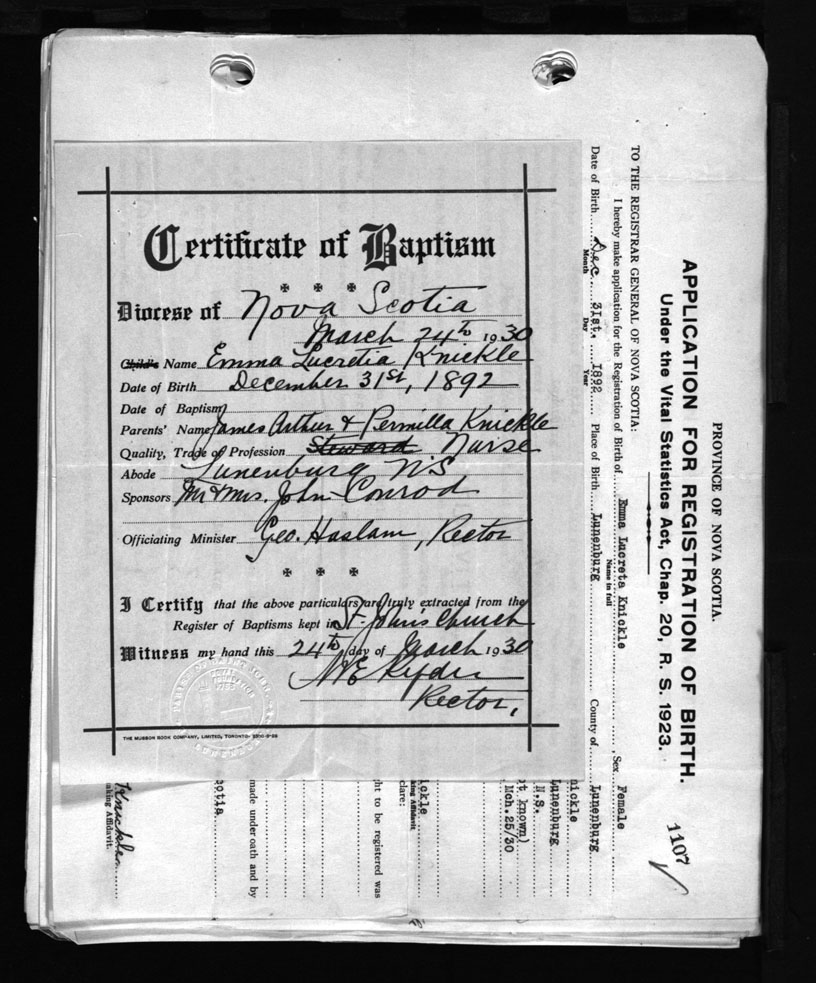 Certificate of Baptism
Diocese of Nova Scotia
March 24th 1930
Child's Name Emma Lucretia Knickle
Date of Birth December 31st, 1892
Date of Baptism
Parents' Name James Arthur & Permilla Knickle
Quality, Trade of Profession Steward Nurse
Abode Lunenburg N.S
Sponsors Mr & Mrs. John Conrod
Officiating Minister Geo. Haslam, Rector
I Certify that the above particulars are truly extracted from the
Register of Baptisms kept in St. John's Church
Witness my hand this 24th day of March 1930
Ryder
Rector,
THE MUSSON BOOK COMPANY, LIMITED, TORONTO
PROVINCE OF NOVA SCOTIA.
APPLICATION FOR REGISTRATION OF BIRTH.
Under the Vital Statistics Act, Chap. 20, R. S. 1923.
1107
TO THE REGISTRAR GENERAL OF NOVA SCOTIA:
I hereby make application for the Registration of Birth of Emma Lucreta Knickle, Sex Female
Name in full
Date of Birth Dec. 31st. 1892 Place of Birth Lunenburg County of Lunenburg
Month Day Year
nickle
Lunenburg
N.S.
ot known)
Mch.25/30
ickle
aking Affidavit
clare:
ght to be registered was
made under oath and by
cotia
Knickle
aking Affidavit.